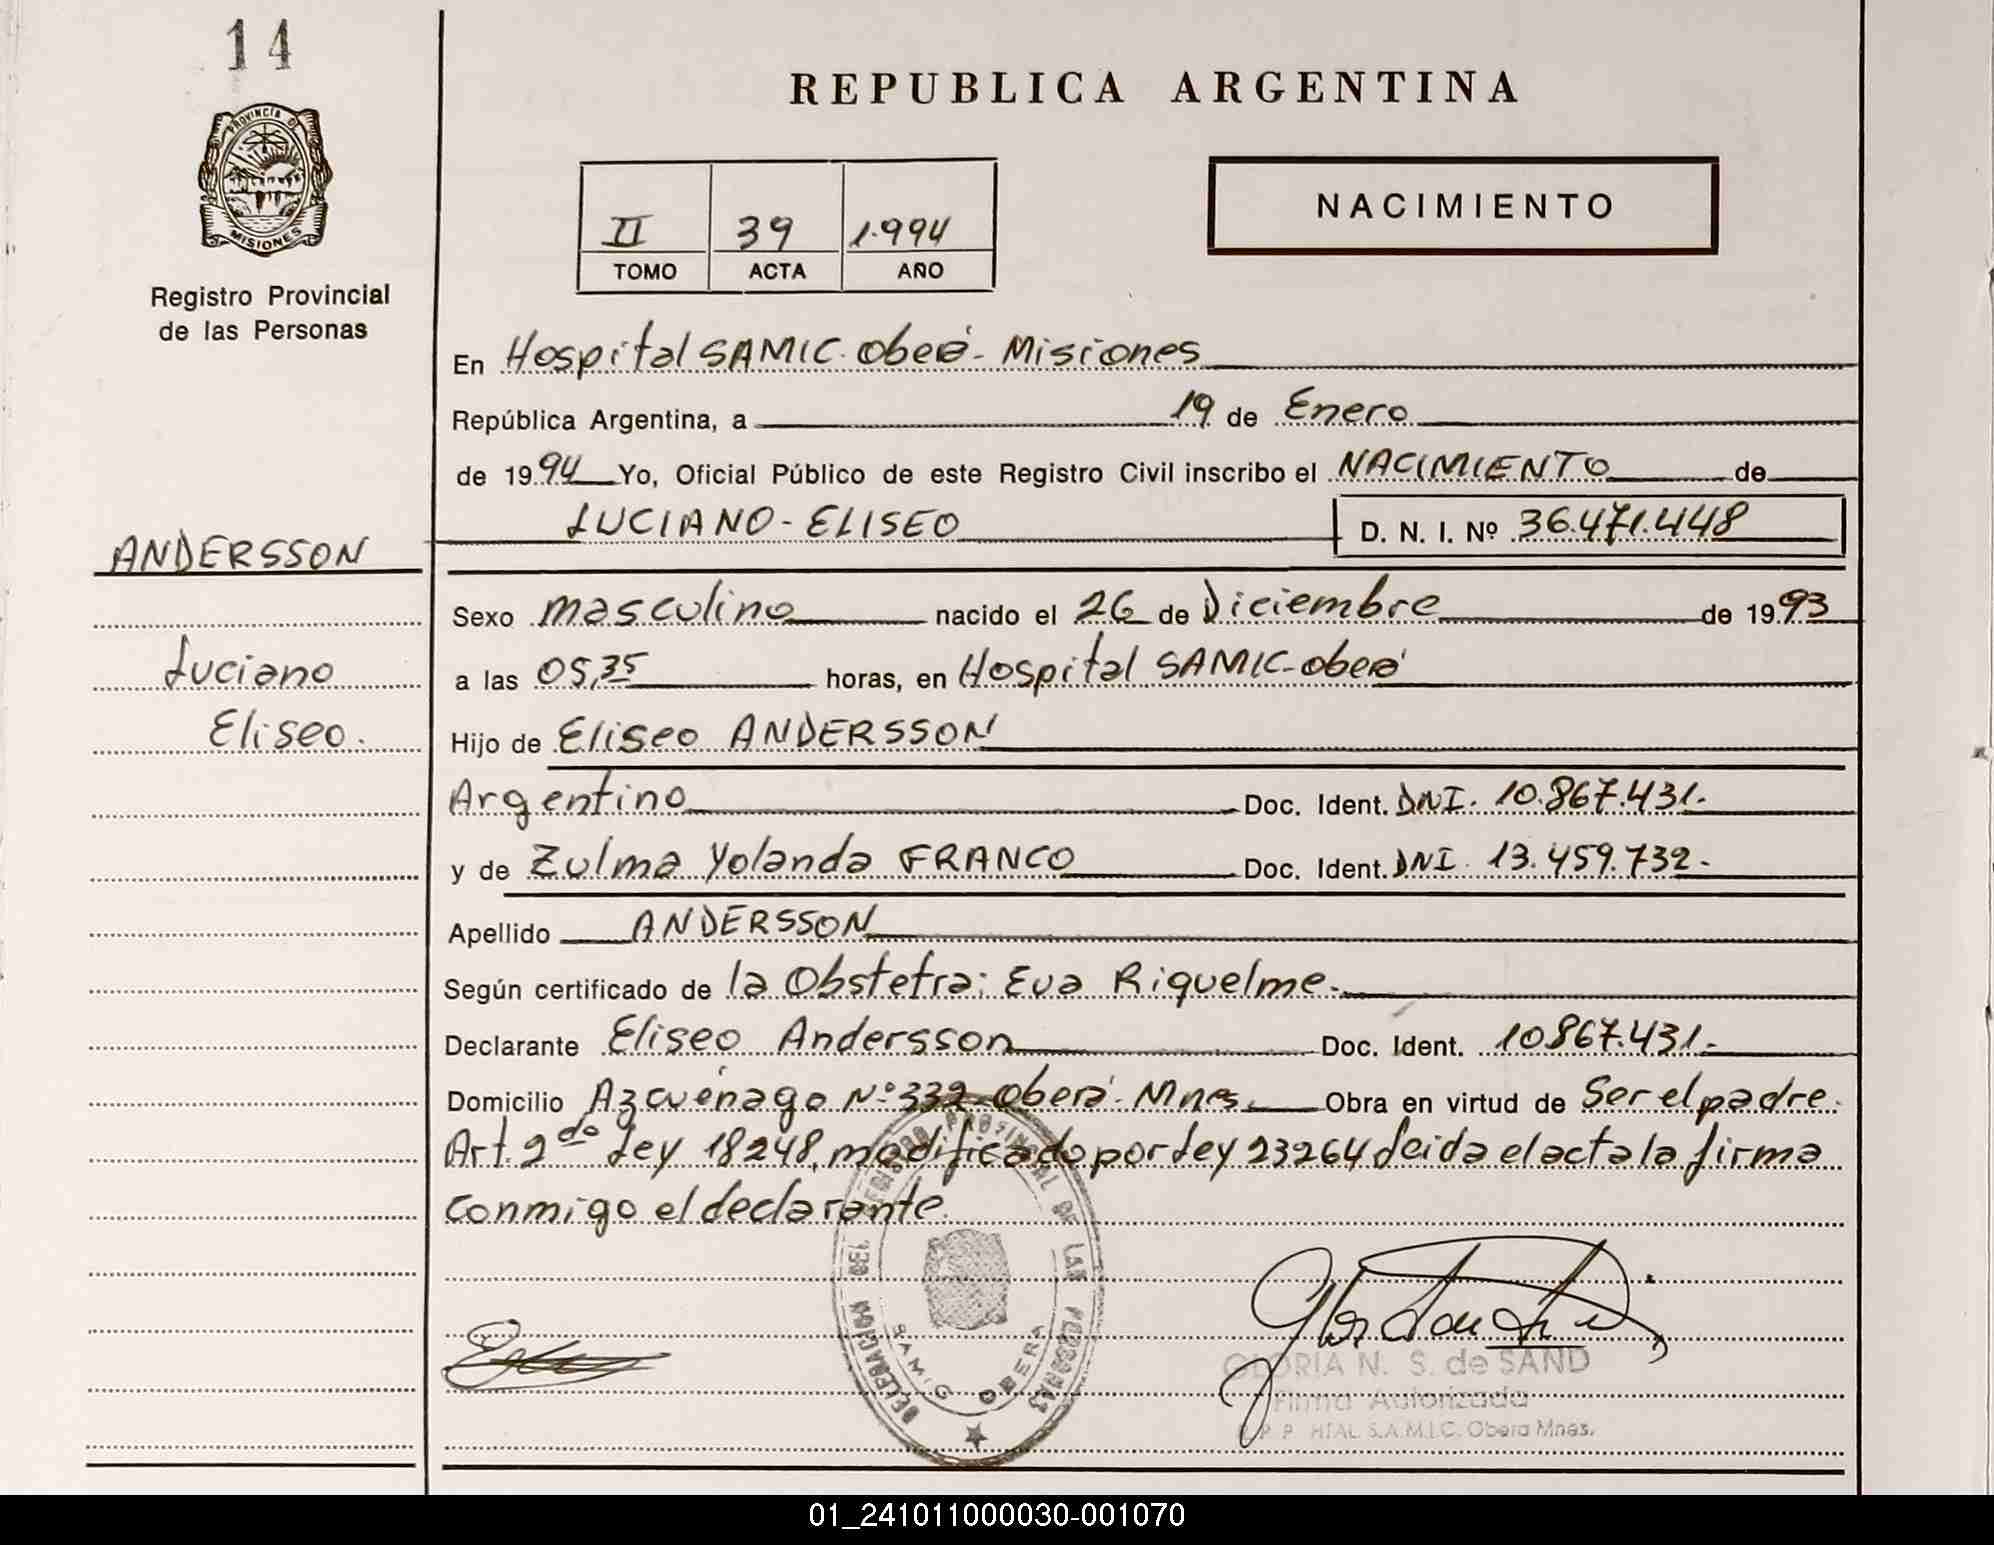 14
PROVINCIA DE
MISIONES
Registro Provincial
de las Personas
ANDERSSON
Luciano
Eliseo.
REPUBLICA ARGENTINA
II 39 1.994
TOMO ACTA AÑO
NACIMIENTO
En Hospital SAMIC. Oberá - Misiones
República Argentina, a 19 de Enero
de 1994 Yo, Oficial Público de este Registro Civil inscribo el NACIMIENTO de
LUCIANO - ELISEO D. N. I. Nº 36.471.448
Sexo masculino nacido el 26 de Diciembre de 1993
a las 05,35 horas, en Hospital SAMIC - Oberá
Hijo de Eliseo ANDERSSON
Argentino Doc. Ident. DNI. 10.867.431.
y de Zulma Yolanda FRANCO Doc. Ident. DNI. 13.459.732.
Apellido ANDERSSON
Según certificado de la Obstetra: Eva Riquelme.
Declarante Eliseo Andersson Doc. Ident. 10.867.431.
Domicilio Azcuénago Nº 332 Oberá. Mnes. Obra en virtud de Ser el padre.
Art. 2do Ley 18248, modificado por Ley 23264 Leida el acta la firma
conmigo el declarante.
REGISTRO PROVINCIAL DE LAS PERSONAS
DELEGACION
SAMIC OBERA
GLORIA N. S. de SAND
Firma Autorizada
R. P. P. HTAL S.A.M.I.C. Oberá Mnes.
01_241011000030-001070